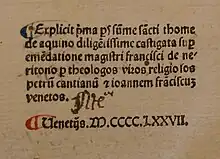 Explicit p̃ma ps sũme sãcti thome
de aquino diligẽtissime castigata sup
emẽdatione magistri francisci de ne⸗
ritonio p theologos viros religiosos
petrũ cantianũ ⁊ ioannem frãciscuʒ
venetos.
Venetijs. M.CCCC.LXXVII.